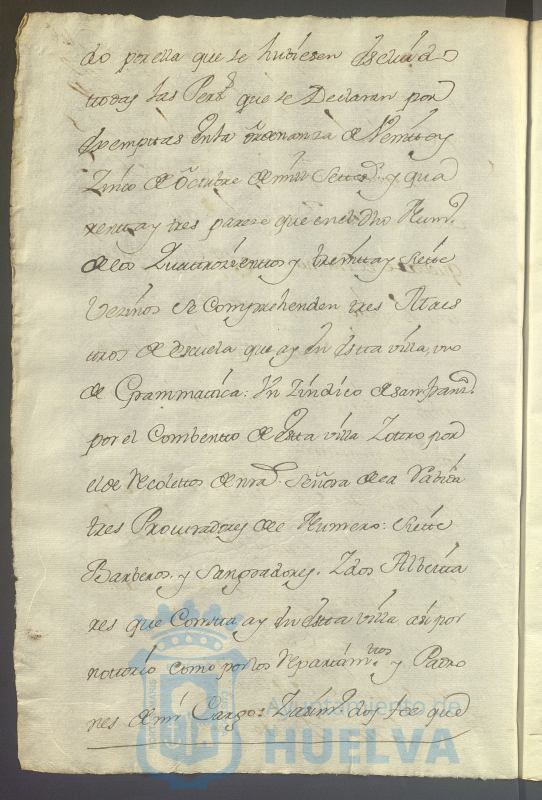 do por ella que se hubiesen escluido
todas las Pers.s que se Declaran por
Exemptas en la ordenanza de Veinte y
Zinco de Octubre de mill Settez.s y qua
renta y tres pareze que en el dho Num.o
de los Quattrozientos y treinta y siette
Vezinos se Comprehenden tres Maes
tros de escuela que ay en esta villa, uno
de Grammatica: Un Zindico de san Fran.co
por el Combento de esta villa Y otro por
el de Recoletos de nra. Señora de la Rabida
tres Procuradores de Numero: Siette
Barberos y Sangradores. Y dos Albeita
res que Consta ay en esta villa asi por
nottorio como por los Repartim.tos y Padro
nes de mi Cargo: Y asim.o doy fee que
Ayuntamiento de
HUELVA